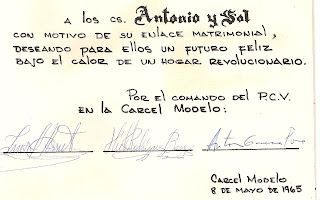 A los cs. Antonio y Sol
CON MOTIVO DE SU ENLACE MATRIMONIAL,
DESEANDO PARA ELLOS UN FUTURO FELIZ
BAJO EL CALOR DE UN HOGAR REVOLUCIONARIO.
POR EL COMANDO DEL P.C.V.
EN LA CARCEL MODELO:
CARCEL MODELO
8 DE MAYO DE 1965